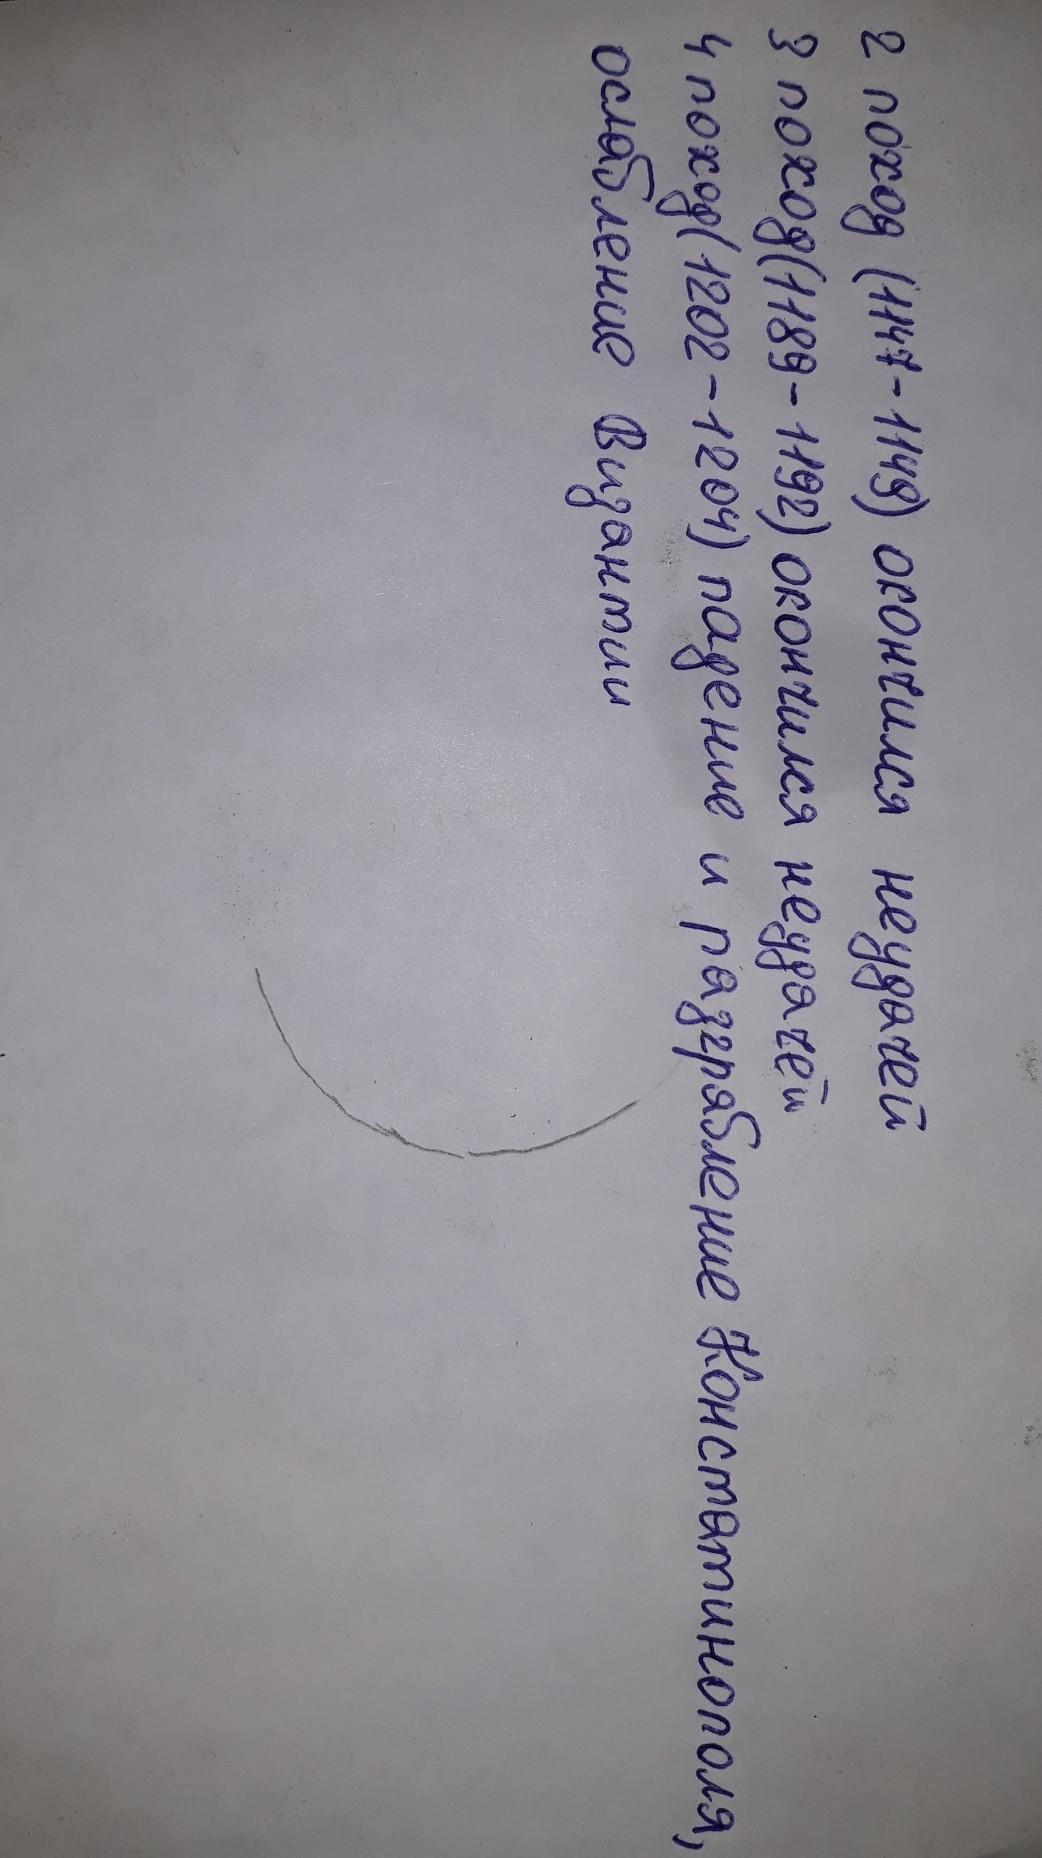 2 поход (1147-1149) окончился неудачей
3 поход (1189-1192) окончился неудачей
4 поход (1202-1204) падение и разгрябление Констатинополя,
ослабление Византии